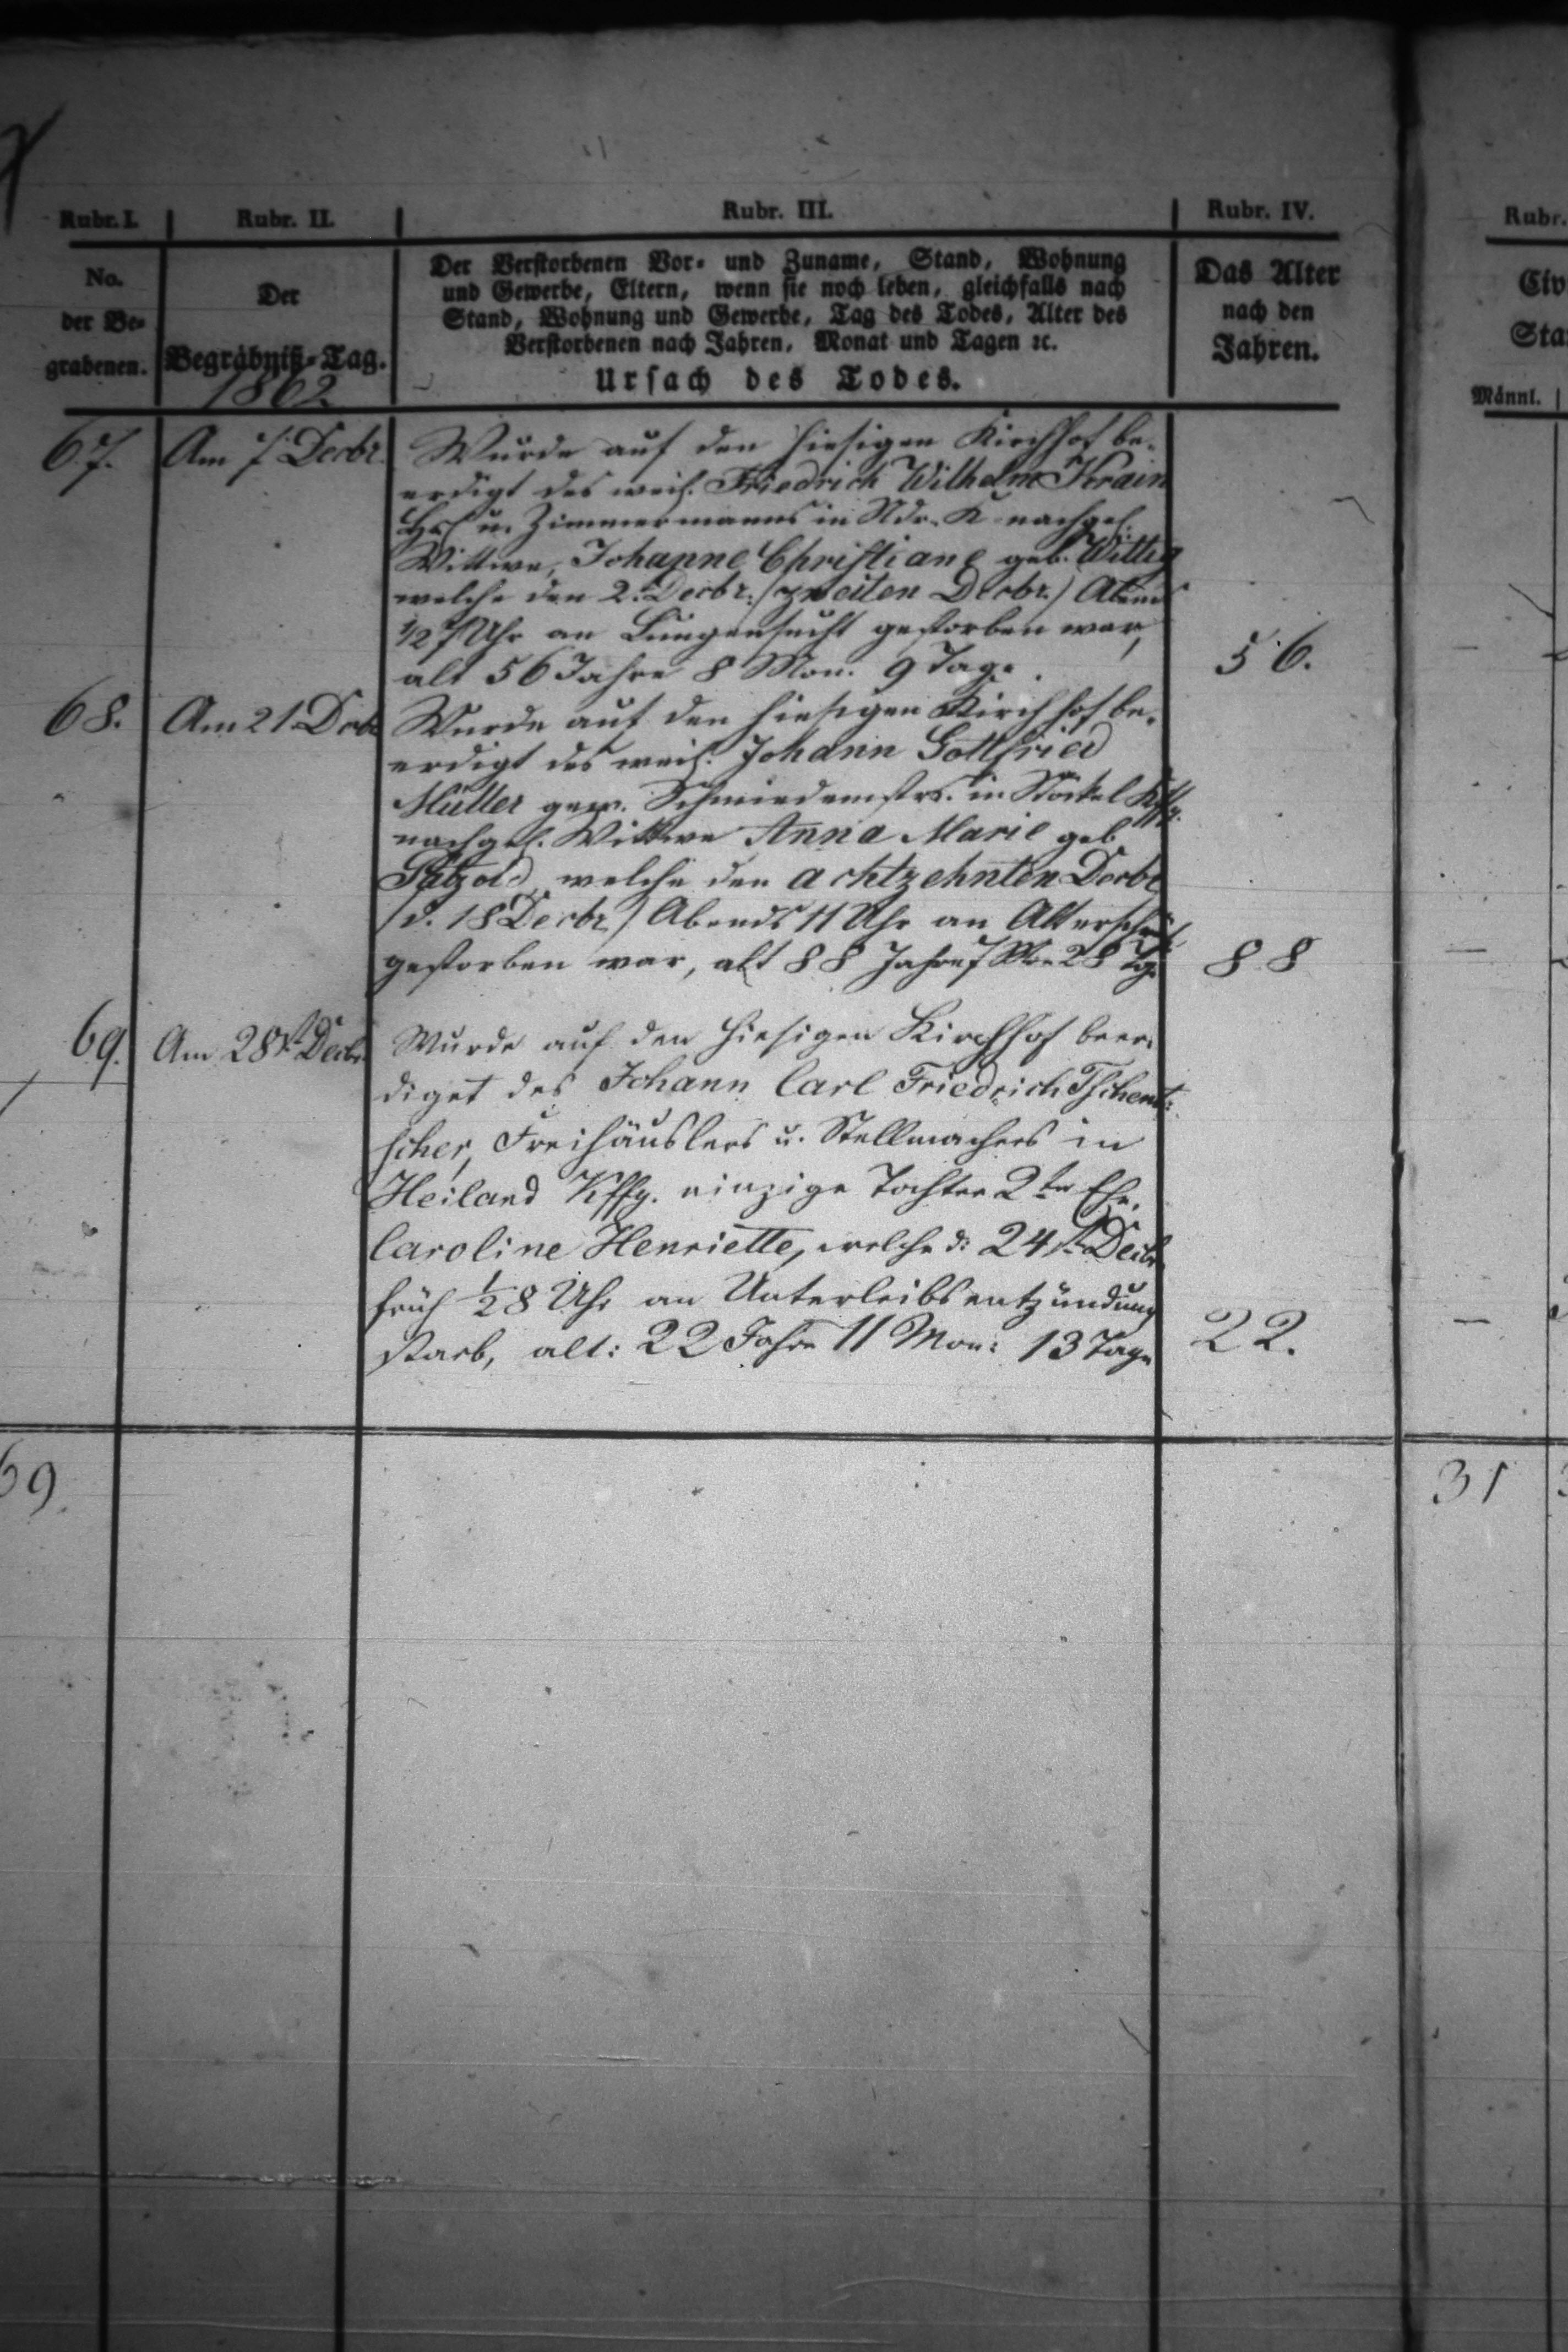 Rubr. I. Rubr. II. Rubr. III. Rubr. IV. Rubr.
No.
der Be-
grabenen.
Der
Begräbniß-Tag.
1862
Der Verstorbenen Vor- und Zuname, Stand, Wohnung
und Gewerbe, Eltern, wenn sie noch leben, gleichfalls nach
Stand, Wohnung und Gewerbe, Tag des Todes, Alter des
Verstorbenen nach Jahren, Monat und Tagen ꝛc.
Ursach des Todes.
Das Alter
nach den
Jahren.
Civ
Sta
Männl.
67. Am 7. Decbr. Wurde auf den hiesigen Kirchhof be-
erdigt des weil. Friedrich Wilhelm Krain
Hsl. u. Zimmermanns in Ndr. K. nachgel.
Wittwe, Johanne Christiane geb. Wittig
welche den 2. Decbr. (zweiten Decbr.) Abend
1/2 7 Uhr an Lungensucht gestorben war,
alt 56 Jahre 8 Mon. 9 Tage. 56.
68. Am 21 Dcbr Wurde auf den hiesigen Kirchhof be-
erdigt des weil. Johann Gottfried
Müller gew. Schmiedemstrs. in Stöckel Kffg.
nachgel. Wittwe Anna Marie geb
Pätzold, welche den achtzehnten Decbr
(d. 18 Decbr.) Abends 11 Uhr an
gestorben war, alt 88 Jahre 7 Mon 28 Tg. 88
69. Am 28st. Decbr. Wurde auf den hiesigen Kirchhof beer-
diget des Johann Carl Friedrich Tschent-
scher, Freihäuslers u. Stellmachers in
Heiland Kffg. einzige Tochter 2ter Ehe,
Caroline Henriette, welche d: 24st. Decbr
früh 1/2 8 Uhr an Unterleibsentzündung
starb, alt: 22 Jahre 11 Mon: 13 Tage 22.
69. 31